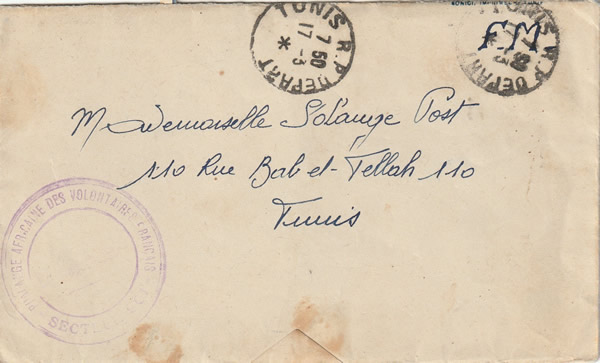 TUNIS R.P DEPART
7 50
17 -3
*
TUNIS R.P DEPART
*
FM
Mademoiselle Solange Post
110 Rue Bab el-Fellah 110
Tunis
PHALANGE AFRICAINE DES VOLONTAIRES FRANÇAIS
SECTEUR